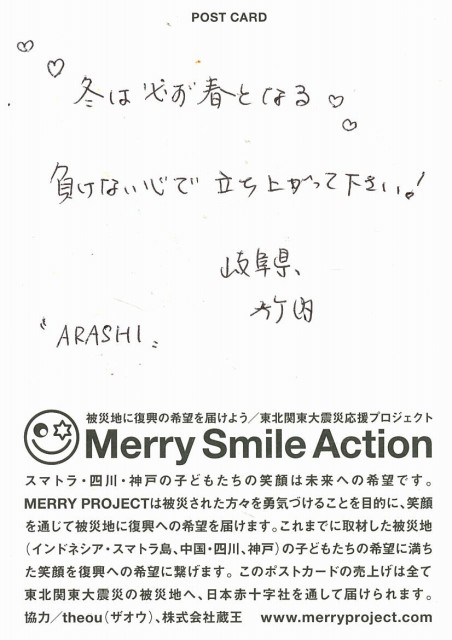 POST CARD
冬は必ず春となる
負けない心で 立ち上がって下さい!
岐阜県、
竹内
"ARASHI"
被災地に復興の希望を届けよう／東北関東大震災応援プロジェクト
Merry Smile Action
スマトラ・四川・神戸の子どもたちの笑顔は未来への希望です。
MERRY PROJECTは被災された方々を勇気づけることを目的に、笑顔
を通じて被災地に復興への希望を届けます。これまでに取材した被災地
（インドネシア・スマトラ島、中国・四川、神戸）の子どもたちの希望に満ち
た笑顔を復興への希望に繋げます。このポストカードの売上げは全て
東北関東大震災の被災地へ、日本赤十字社を通して届けられます。
協力／theou（ザオウ）、株式会社蔵王 www.merryproject.com